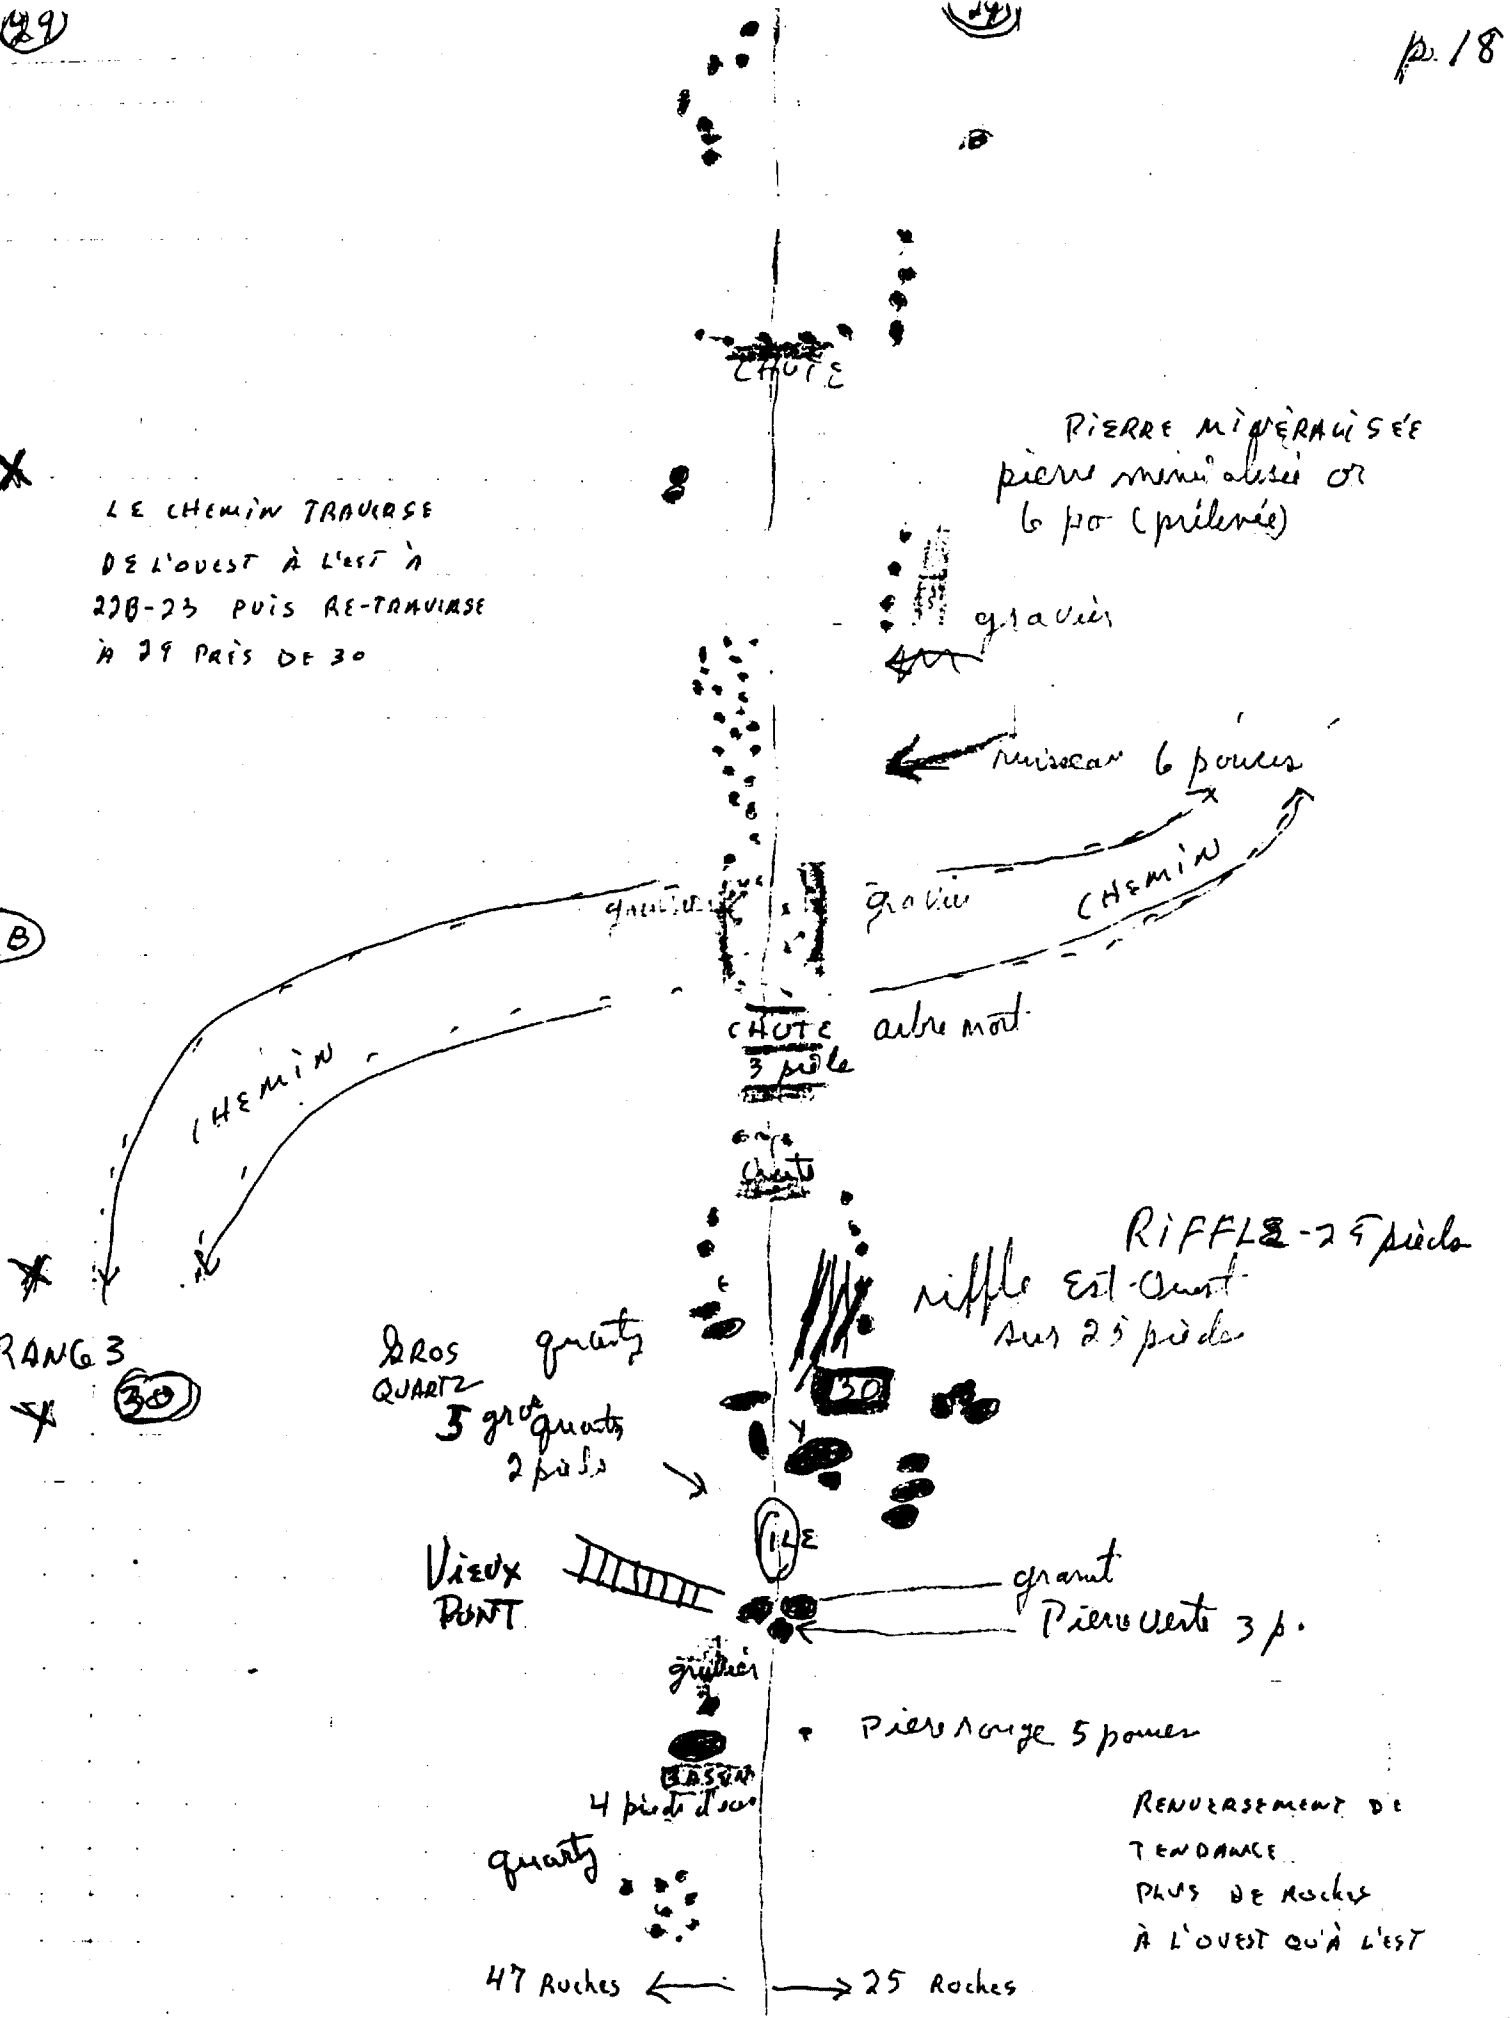 29
29
p. 18
B
CHUTE
PIERRE MINÉRALISÉE
pierre minéralisée or
6 po (prélevée)
LE CHEMIN TRAVERSE
DE L'OUEST À L'EST À
22B-23 PUIS RE-TRAVERSE
À 29 PRÈS DE 30
gravier
ruisseau 6 pouces
CHEMIN
gravier
gravier
B
CHUTE arbre mort
3 pieds
CHEMIN
chute
RIFFLE - 25 pieds
riffle Est-Ouest
sur 25 pieds
RANG 3
30
GROS
QUARTZ
quartz
30
5 gros quartz
2 pieds
ILE
VIEUX
PONT
granit
Pierre verte 3 p.
gravier
Pierre rouge 5 pouces
BASSIN
4 pieds d'eau
RENVERSEMENT DE
TENDANCE
PLUS DE ROCHES
À L'OUEST QU'À L'EST
quartz
47 Roches
25 Roches